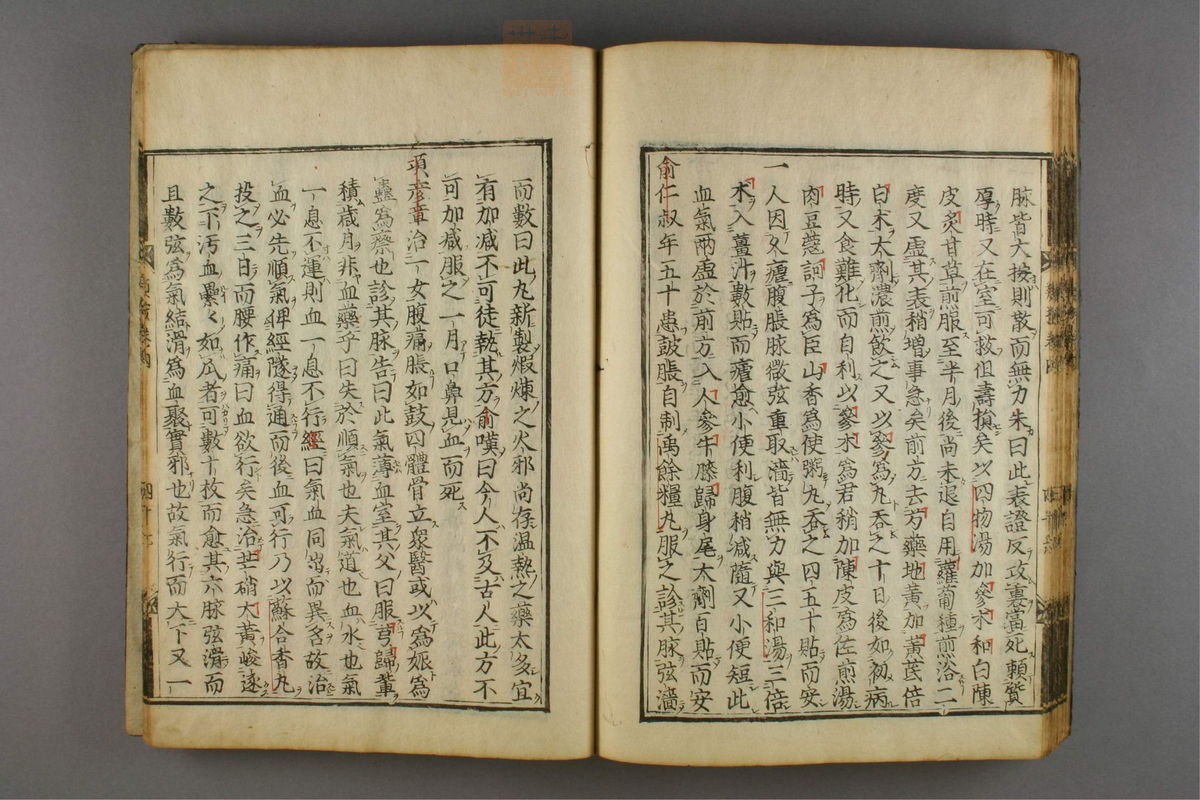 脉皆大按則散而無力朱曰此表證反攻裏當死賴質
厚時又在室可救但壽損矣以四物湯加參朮和白陳
皮炙甘草煎服至半月後尚未退自用蘿葡種煎浴二
度又虛其表稍增事急矣前方去芍藥地黃加黃芪倍
白朮大劑濃煎飲之又以參爲丸吞之十日後如初病
時又食難化而自利以參朮爲君稍加陳皮爲佐煎湯
肉豆蔻訶子爲臣山香爲使粥丸吞之四五十貼而安
一人因久瘧腹脹脉微弦重取濇皆無力與三和湯三倍
朮入薑汁數貼而瘧愈小便利腹稍减隨又小便短此
血氣兩虛於前方入人參牛膝歸身尾大劑百貼而安
俞仁叔年五十患皷脹自制禹餘糧丸服之診其脉弦濇
而數曰此丸新製煆煉之火邪尚存温熱之藥太多宜
有加减不可徒執其方俞嘆曰今人不及古人此方不
可加减服之一月口鼻見血而死
項彦章治一女腹痛脹如鼓四體骨立衆醫或以爲娠爲
蠱爲瘵也診其脉告曰此氣薄血室其父曰服芎歸輩
積歲月非血藥乎曰失於順氣也夫氣道也血水也氣
一息不運則血一息不行經曰氣血同出而異名故治
血必先順氣俾經隧得通而後血可行乃以蘇合香丸
投之三日而腰作痛曰血欲行矣急治芒硝大黃峻逐
之下汚血纍々如瓜者可數十枚而愈其六脉弦滑而
且數弦爲氣結滑爲血聚實邪也故氣行而大下又一